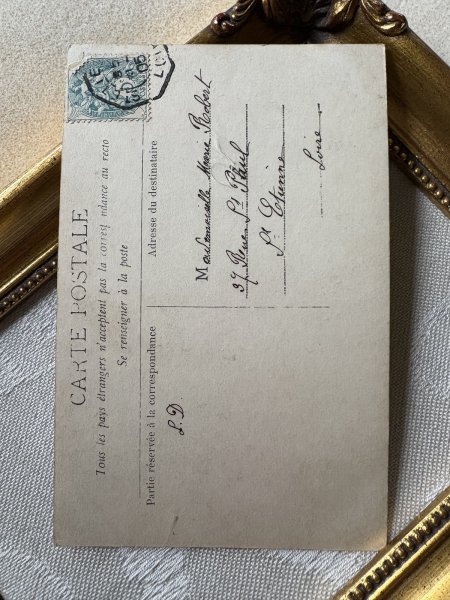 CARTE POSTALE
Tous les pays étrangers n'acceptent pas la correspondance au recto
Se renseigner à la poste
Partie réservée à la correspondance
Adresse du destinataire
L. D.
Mademoiselle Marie Robert
37 Rue St Paul
St Etienne
Loire